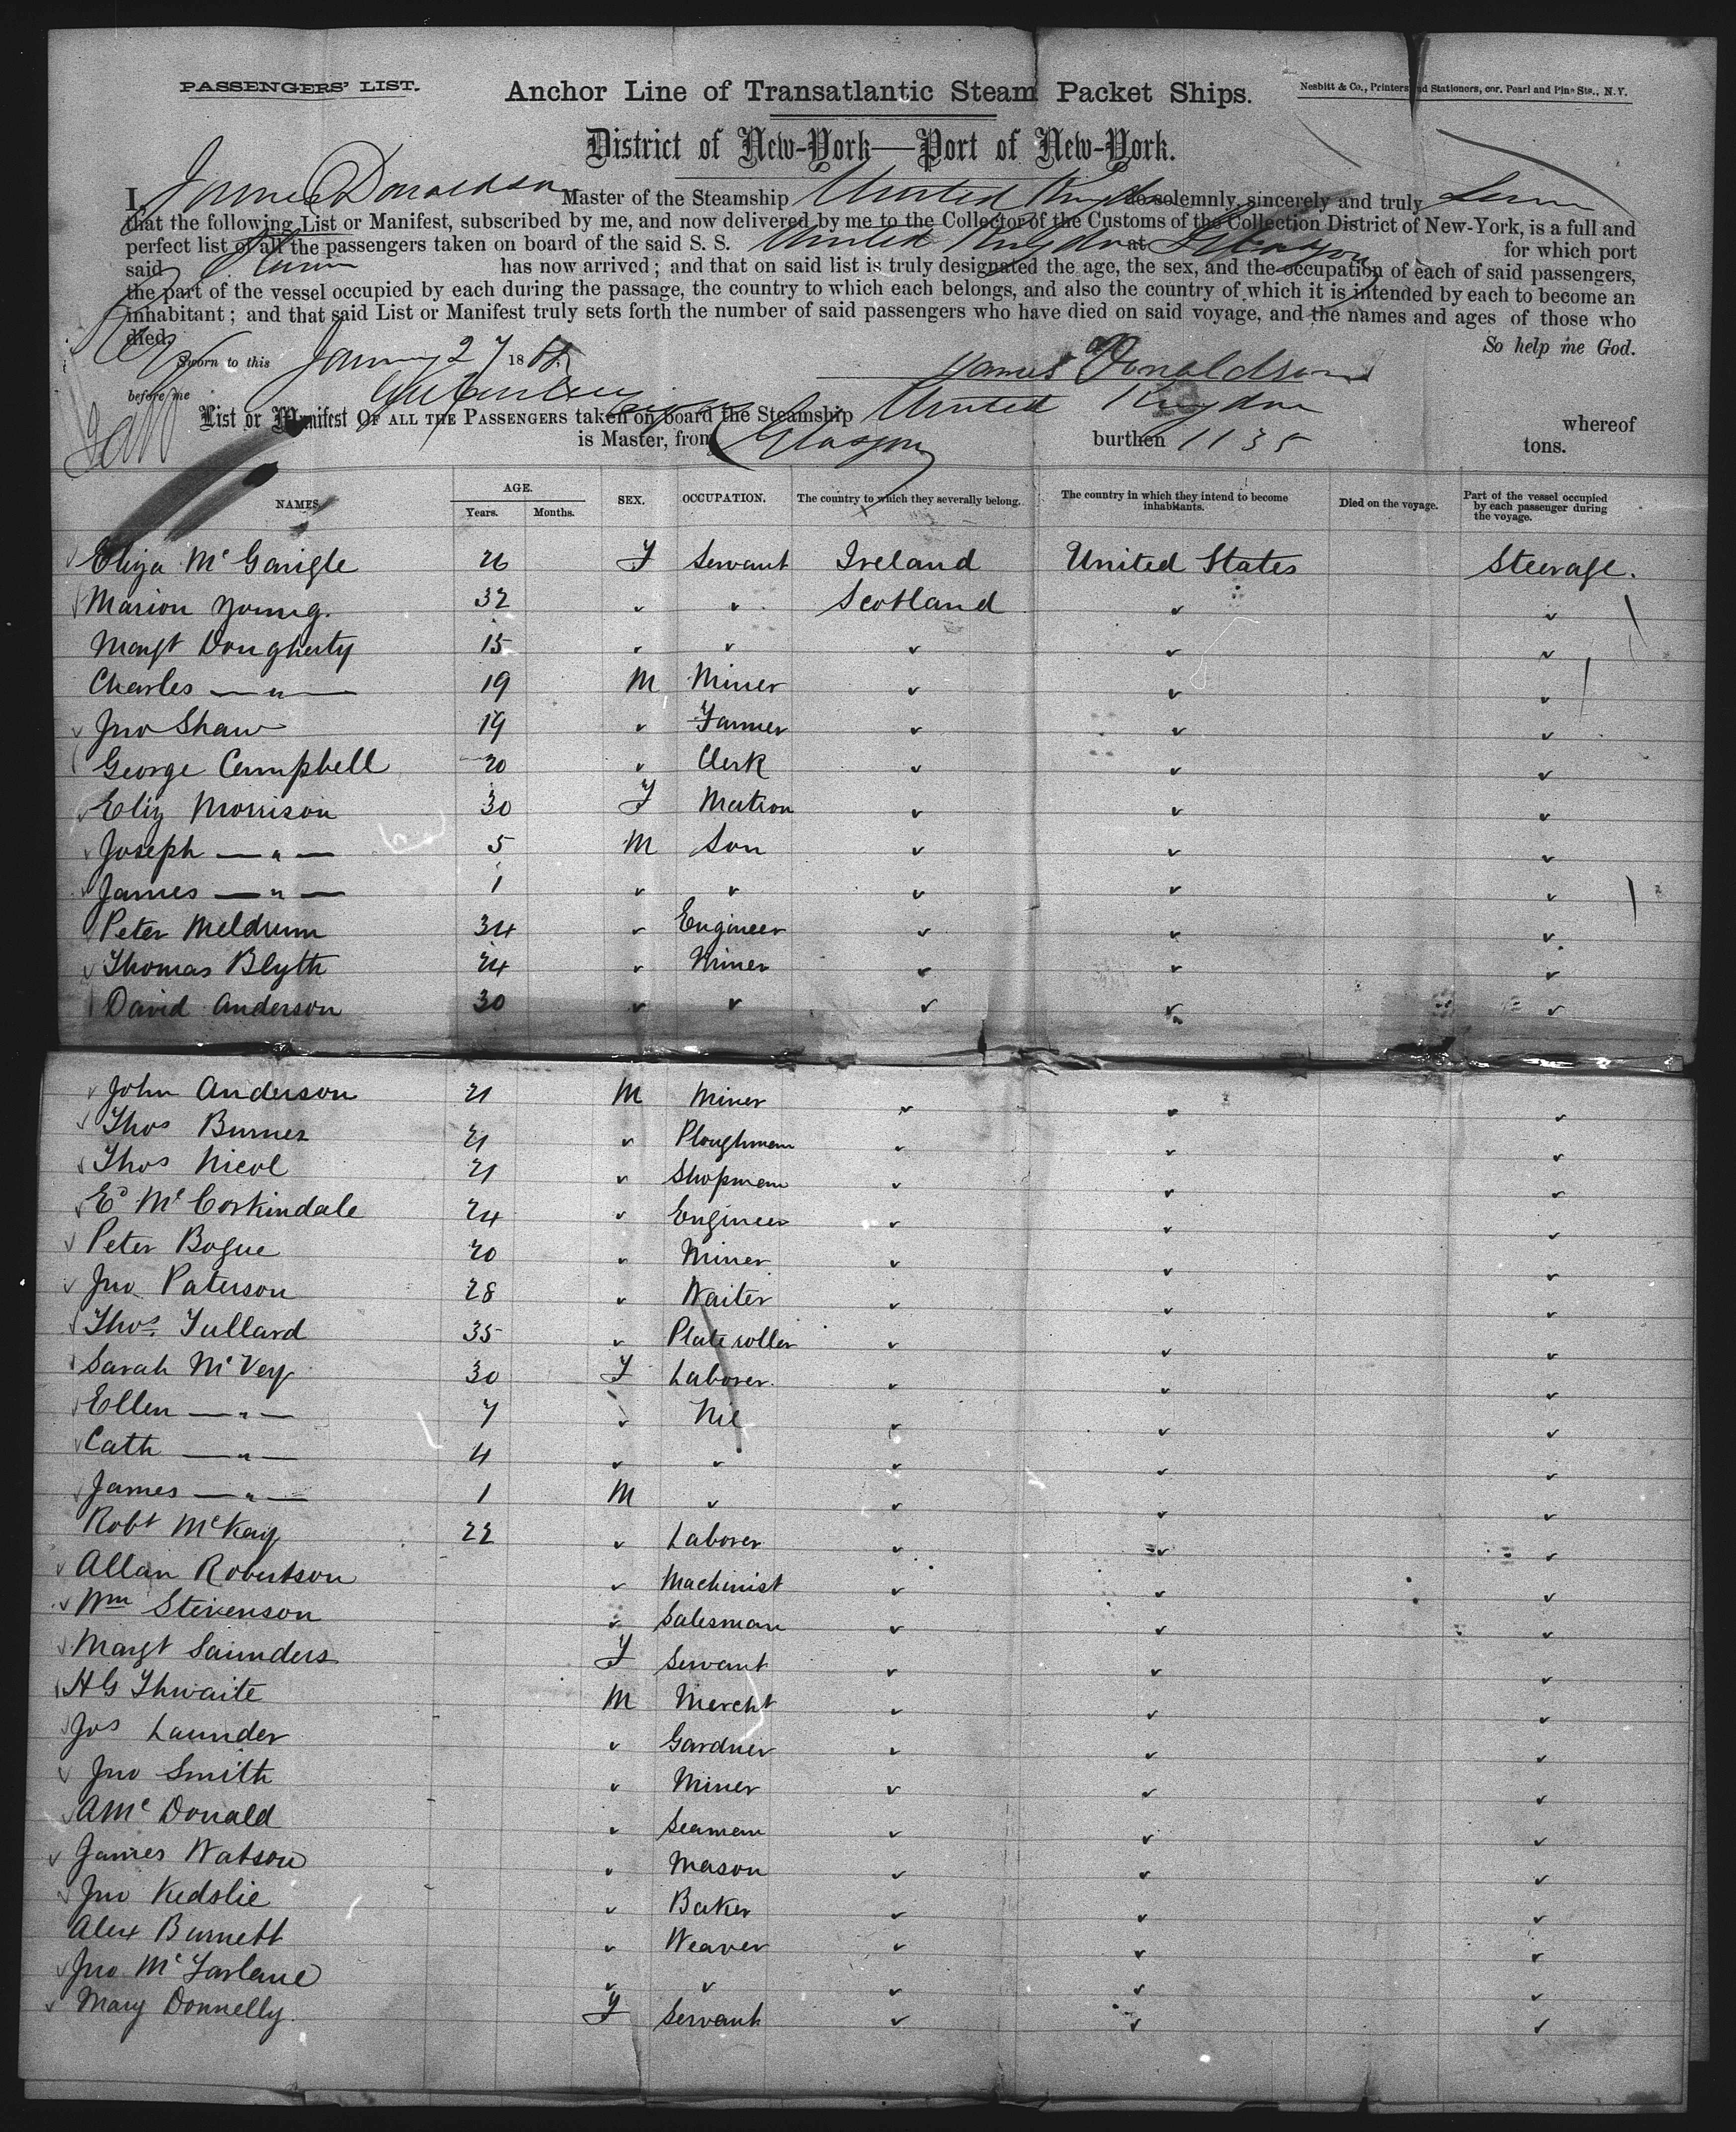 PASSENGERS' LIST.
Anchor Line of Transatlantic Steam Packet Ships.
Nesbitt & Co., Printers and Stationers, cor. Pearl and Pine Sts., N. Y.
District of New-York—Port of New-York.
I, James Donaldson Master of the Steamship United Kingdom do solemnly, sincerely and truly
that the following List or Manifest, subscribed by me, and now delivered by me to the Collector of the Customs of the Collection District of New-York, is a full and
perfect list of all the passengers taken on board of the said S. S. United Kingdom at Glasgow for which port
said has now arrived; and that on said list is truly designated the age, the sex, and the occupation of each of said passengers,
the part of the vessel occupied by each during the passage, the country to which each belongs, and also the country of which it is intended by each to become an
inhabitant; and that said List or Manifest truly sets forth the number of said passengers who have died on said voyage, and the names and ages of those who
died. So help me God.
Sworn to this January 27 18 James Donaldson
before me
List or Manifest OF ALL THE PASSENGERS taken on board the Steamship United Kingdom whereof
is Master, from Glasgow burthen 1135 tons.
NAMES. AGE. Years. Months. SEX. OCCUPATION. The country to which they severally belong. The country in which they intend to become inhabitants. Died on the voyage. Part of the vessel occupied by each passenger during the voyage.
Eliza McGarigle 26 F Servant Ireland United States Steerage.
Marion Young. 32 " " Scotland " "
Margt Dougherty 15 " " " " "
Charles — " — 19 M Miner " " "
Jno Shaw 19 " Farmer " " "
George Campbell 20 " Clerk " " "
Eliz Morrison 30 F Matron " " "
Joseph — " — 5 M Son " " "
James — " — 1 " " " " "
Peter Meldrum 34 " Engineer " " "
Thomas Blyth 24 " Miner " " "
David Anderson 30 " " " " "
John Anderson 21 M Miner " " "
Thos Burnes 21 " Ploughman " " "
Thos Nicol 21 " Shopman " " "
Ed McCorkindale 24 " Engineer " " "
Peter Bogue 20 " Miner " " "
Jno Paterson 28 " Waiter " " "
Thos. Tullard 35 " Plate roller " " "
Sarah McVey 30 F Laborer " " "
Ellen — " — 7 " Nil " " "
Cath — " — 4 " " " " "
James — " — 1 M " " " "
Robt McKay 22 " Laborer " " "
Allan Robertson " Machinist " " "
Wm Stevenson " Salesman " " "
Margt Saunders F Servant " " "
HG Thwaite M Mercht " " "
Jos Launder " Gardner " " "
Jno Smith " Miner " " "
A McDonald " Seaman " " "
James Watson " Mason " " "
Jno Kedslie " Baker " " "
Alex Burnett " Weaver " " "
Jno McFarlane " " " " "
Mary Donnelly F Servant " " "